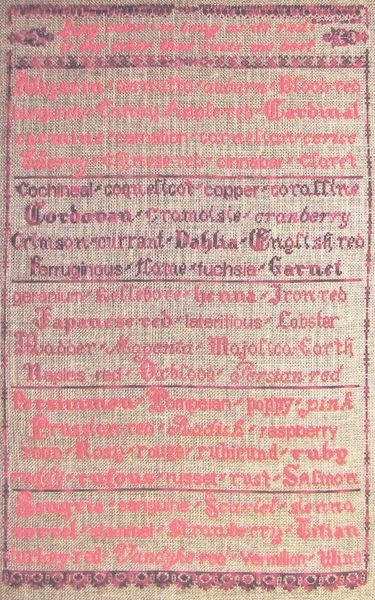 Any color so long as it's red
is the color that suits me best
Alizarin amaranth auburn Blood-red
burgundy Candy Apple-red Cardinal
carmine carnation carnelian cerise
Cherry Chinese-red cinnabar Claret
Cochineal coquelicot copper coralline
Cordovan Cramoisie cranberry
Crimson currant Dahlia English-red
ferruginous flame fuchsia Garnet
geranium hellebore henna Iron red
Japanese-red lateritious Lobster
Madder Magenta Majolica Earth
Naples red Oxblood Persian-red
Persimmon Pompeian poppy pink
Prussian-red Radish raspberry
Rose rouge rubicund ruby
ruddy rufous russet rust Salmon
Sangria sanguine Scarlet sienna
sorrel stammel Strawberry Titian
turkey-red Vandyke-red vermilion Wine